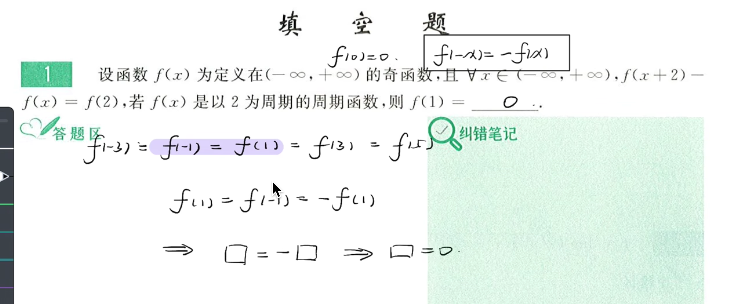 填 空 题
f(0)=0. f(-x)=-f(x)
1 设函数 f(x) 为定义在(-∞,+∞)的奇函数,且 ∀x∈(-∞,+∞),f(x+2)-
f(x)=f(2),若 f(x) 是以 2 为周期的周期函数,则 f(1)= 0 .
答题区 纠错笔记
f(-3) = f(-1) = f(1) = f(3) = f(5)
f(1) = f(-1) = -f(1)
⇒ □ = -□ ⇒ □ = 0.